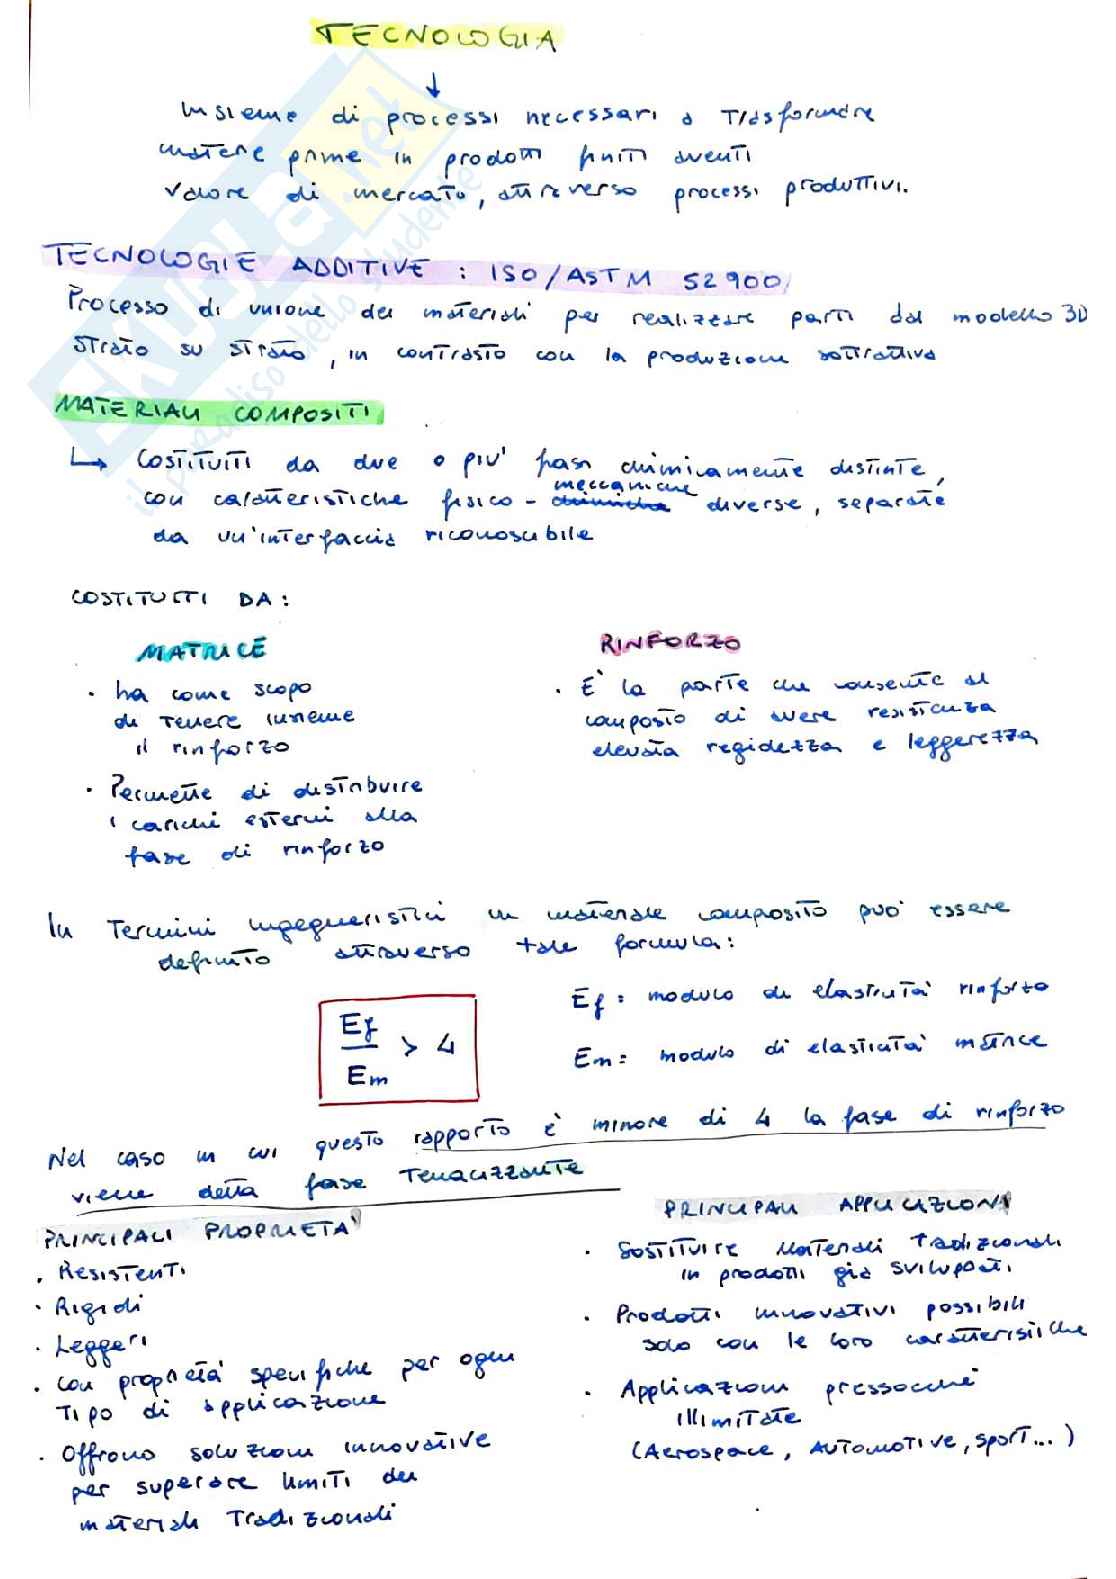 TECNOLOGIA
↓
Insieme di processi necessari a trasformare
materie prime in prodotti finiti aventi
valore di mercato, attraverso processi produttivi.
TECNOLOGIE ADDITIVE : ISO/ASTM 52900
Processo di unione dei materiali per realizzare parti dal modello 3D
strato su strato, in contrasto con la produzione sottrattiva
MATERIALI COMPOSITI
↳ Costituiti da due o piu' fasi chimicamente distinte,
con caratteristiche fisico - chimiche meccaniche diverse, separate
da un'interfaccia riconoscibile
COSTITUITI DA:
MATRICE
· ha come scopo
di tenere insieme
il rinforzo
· Permette di distribuire
i carichi esterni alla
fase di rinforzo
RINFORZO
· È la parte che consente al
composto di avere resistenza
elevata regidezza e leggerezza
In termini ingegneristici un materiale composito puo' essere
definito attraverso tale formula:
Ef / Em > 4
Ef: modulo di elasticita' rinforzo
Em: modulo di elasticita' matrice
Nel caso in cui questo rapporto è minore di 4 la fase di rinforzo
viene detta fase tenacizzante
PRINCIPALI PROPRIETA'
· Resistenti
· Rigidi
· Leggeri
· con proprieta' specifiche per ogni
tipo di applicazione
· Offrono soluzioni innovative
per superare limiti dei
materiali tradizionali
PRINCIPALI APPLICAZIONI
· Sostituire materiali tradizionali
in prodotti già sviluppati.
· Prodotti innovativi possibili
solo con le loro caratteristiche
· Applicazioni pressocche'
illimitate
(Aerospace, AUTOMOTIVE, sport...)
SKUOLA.net
il paradiso dello studente